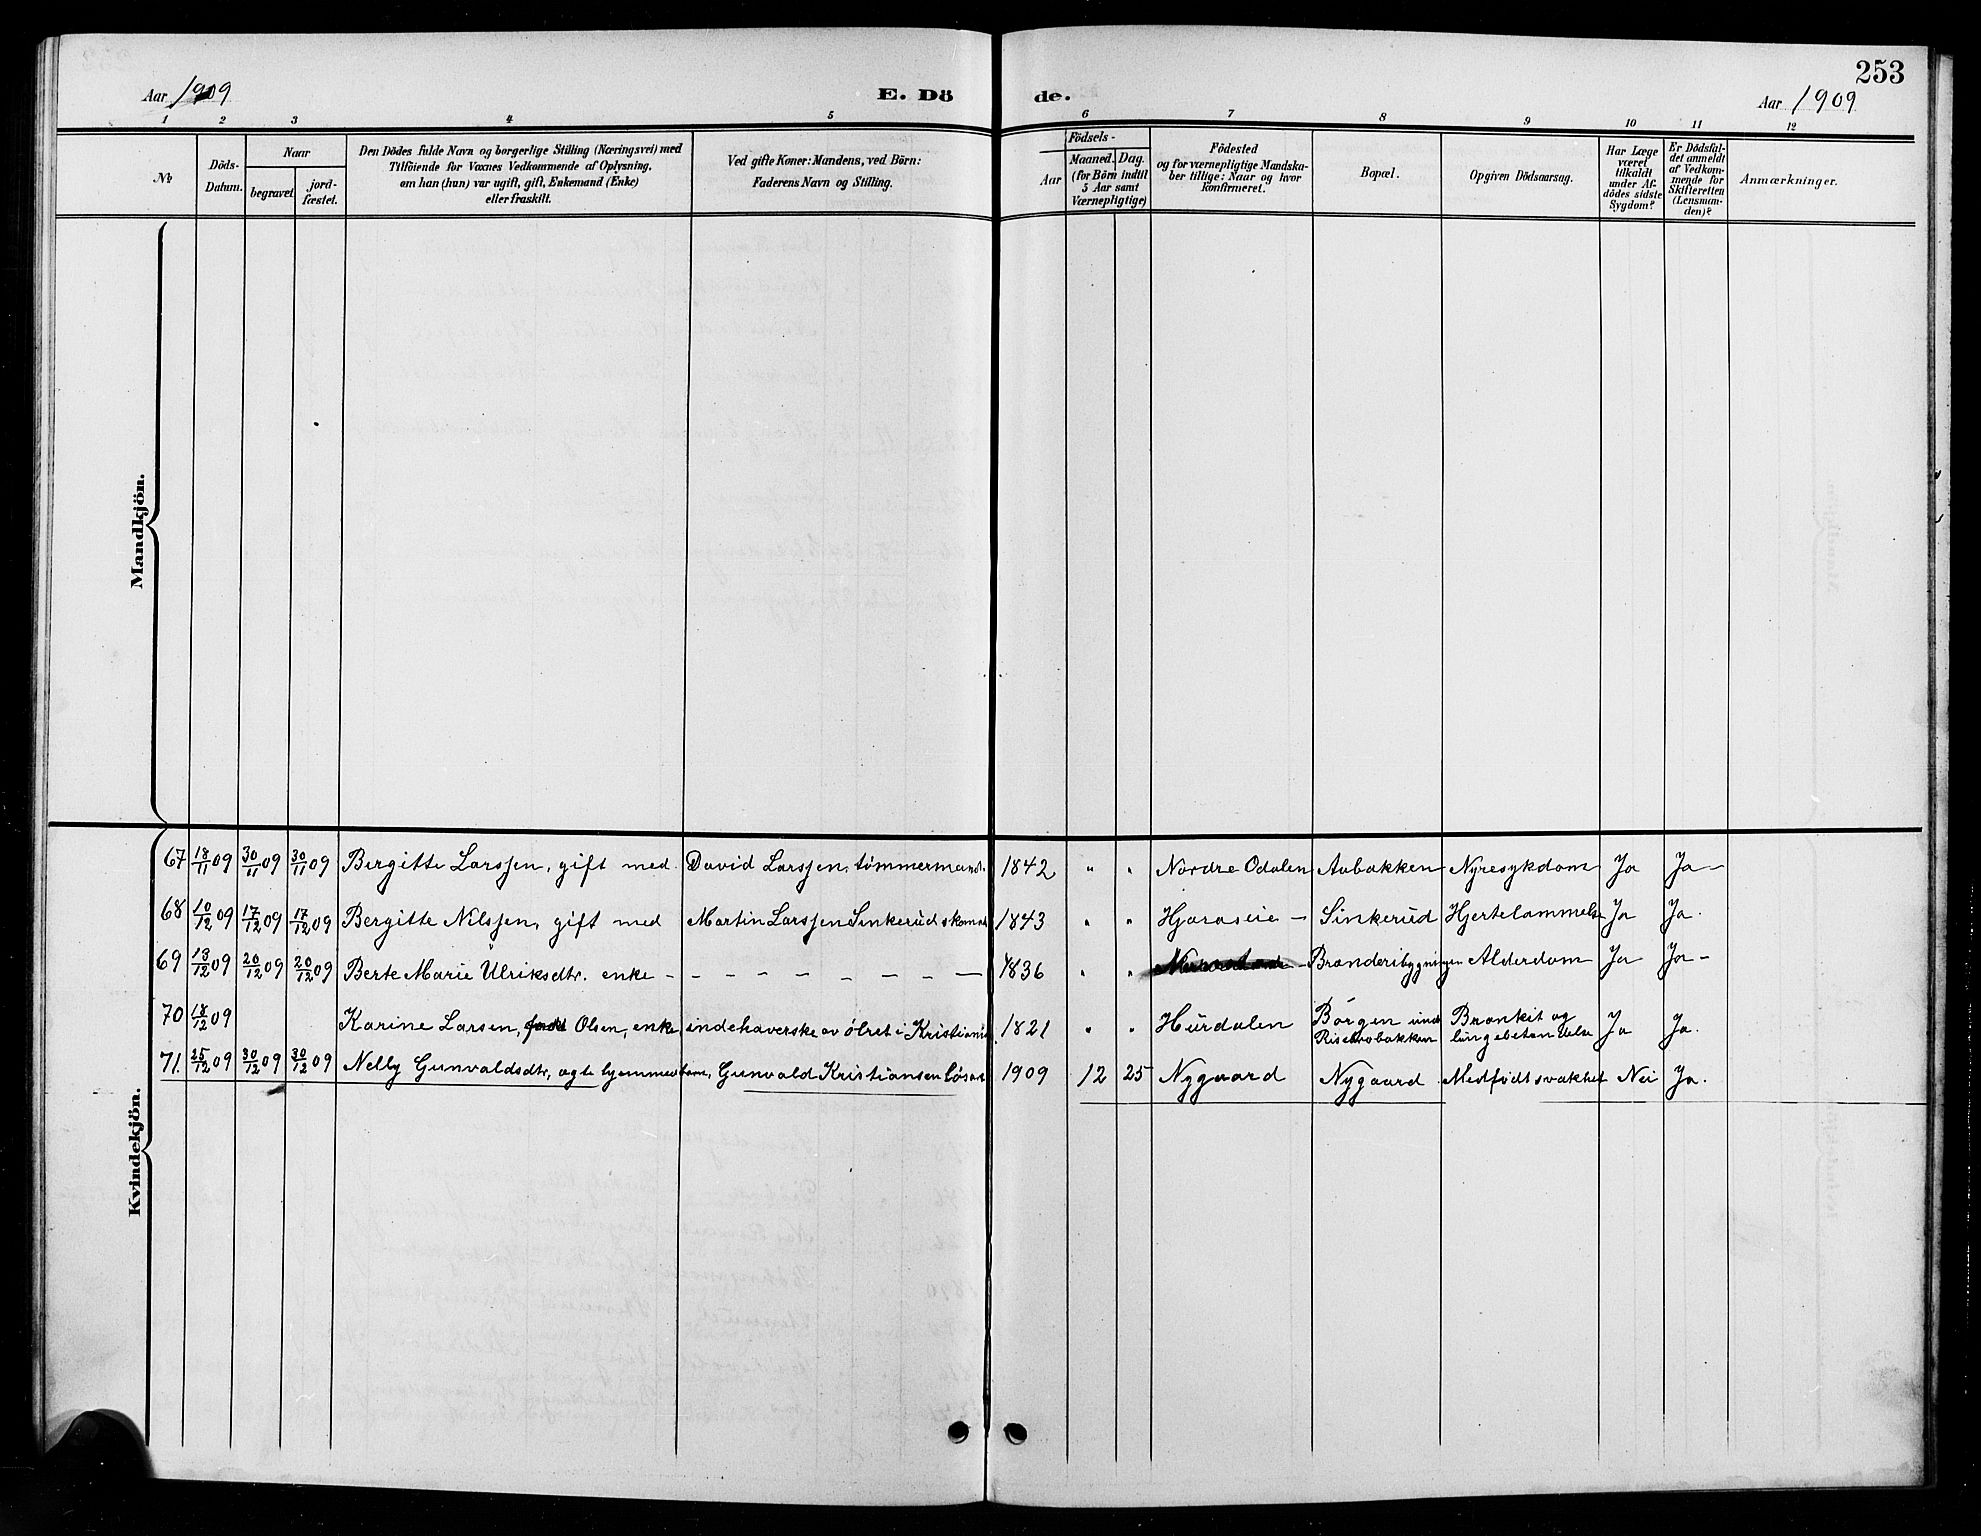 253
Aar 1909 E. Dö de. Aar 1909
1 2 3 4 5 6 7 8 9 10 11 12
№
Döds-
Datum.
Naar
begravet
jord-
fæstet.
Den Dödes fulde Navn og borgerlige Stilling (Næringsvei) med
Tilföiende for Voxnes Vedkommende af Oplysning,
om han (hun) var ugift, gift, Enkemand (Enke)
eller fraskilt.
Ved gifte Koner: Mandens, ved Börn:
Faderens Navn og Stilling.
Födsels-
Aar
Maaned. Dag.
(for Börn indtil
5 Aar samt
Værnepligtige)
Födested
og for værnepligtige Mandska-
ber tillige: Naar og hvor
konfirmeret.
Bopæl.
Opgiven Dödsaarsag.
Har Læge
været
tilkaldt
under Af-
dödes sidste
Sygdom?
Er Dödsfal-
det anmeldt
af Vedkom-
mende for
Skifteretten
(Lensman-
den)?
Anmærkninger.
Mandkjön.
Kvindekjön.
67 18/11 09 30/11 09 30/11 09 Bergitte Larssen, gift med David Larssen, tømmermand. 1842 " " Nordre Odalen Aabakken Nyresykdom Ja Ja –
68 10/12 09 17/12 09 17/12 09 Bergitte Nilssen, gift med Martin Larssen Sinkerud 1843 " " Sinkerud Hjertelammelse Ja Ja.
69 13/12 09 20/12 09 20/12 09 Berte Marie Ulriksdtr. enke – – – – – – – 1836 " " – Brænderibygningen Alderdom Ja Ja –
70 18/12 09 Karine Larsen, født Olsen, enke, indehaverske av ølret i Kristiania. 1821 " " Hurdalen Børgen und Bronkit og Ja Ja.
lungebetændelse
71. 25/12 09 30/12 09 30/12 09 Nelly Gunvaldsdtr, ægte hjemmed. barn, Gunvald Kristiansen Løsar. 1909 12 25 Nygaard Nygaard Medfødt svakhet Nei Ja.